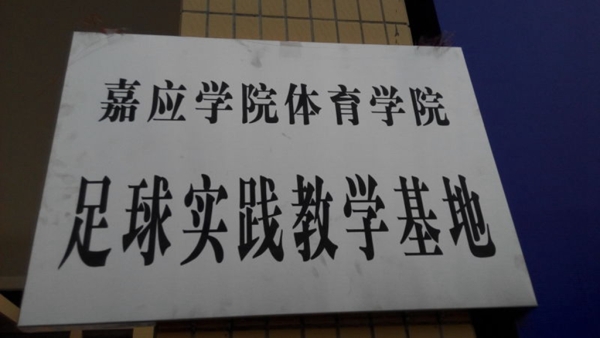 嘉应学院体育学院
足球实践教学基地